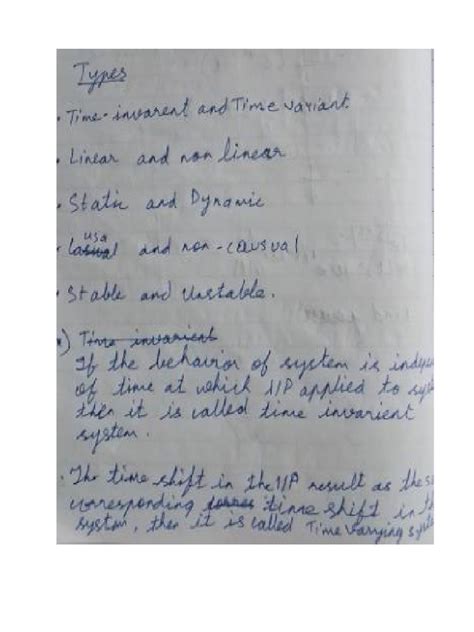 Types
• Time-invarent and Time variant
• Linear and non linear
• Static and Dynamic
• Causal and non-causual
• Stable and Unstable.
Time invarient
If the behavior of system is indepe
of time at which I/P applied to sys
then it is called time invarient
system.
• The time shift in the I/P result as the sa
corresponding time shift in th
system, then it is called Time varying syste